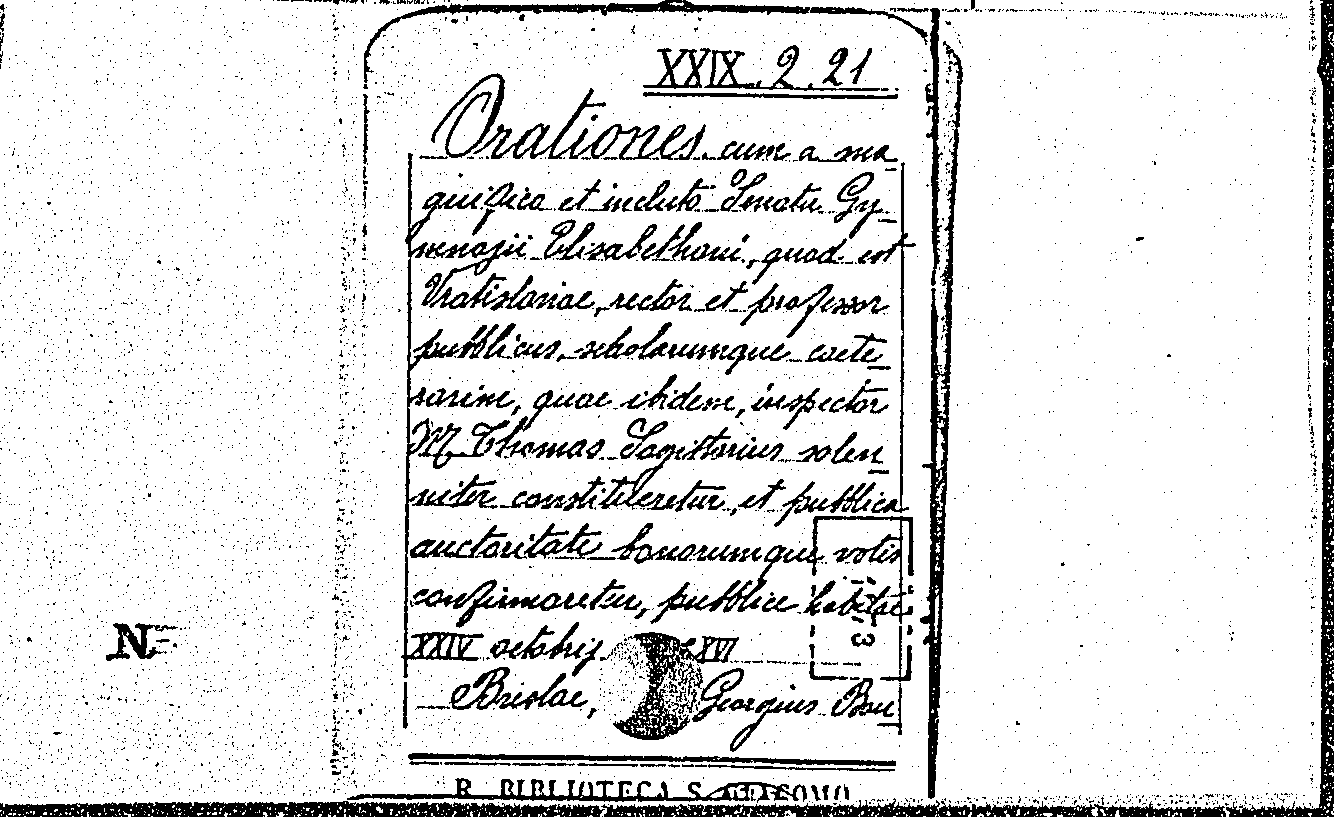 XXIX.2.21
Orationes cum a ma
gnifico et incluto Senatu Gy_
mnasii Elisabethani, quod est
Vratislaviae, rector et professor
pubblicus, scholarumque caete_
rarum, quae ibidem, inspector
M. Thomas Sagittarius solen_
niter constitueretur, et pubblica
auctoritate bonorumque votis
confirmaretur, pubblice habitae
XXIV octobris XVI
Breslae, Georgius Bau_
R. BIBLIOTECA S. GIACOMO
N.
3